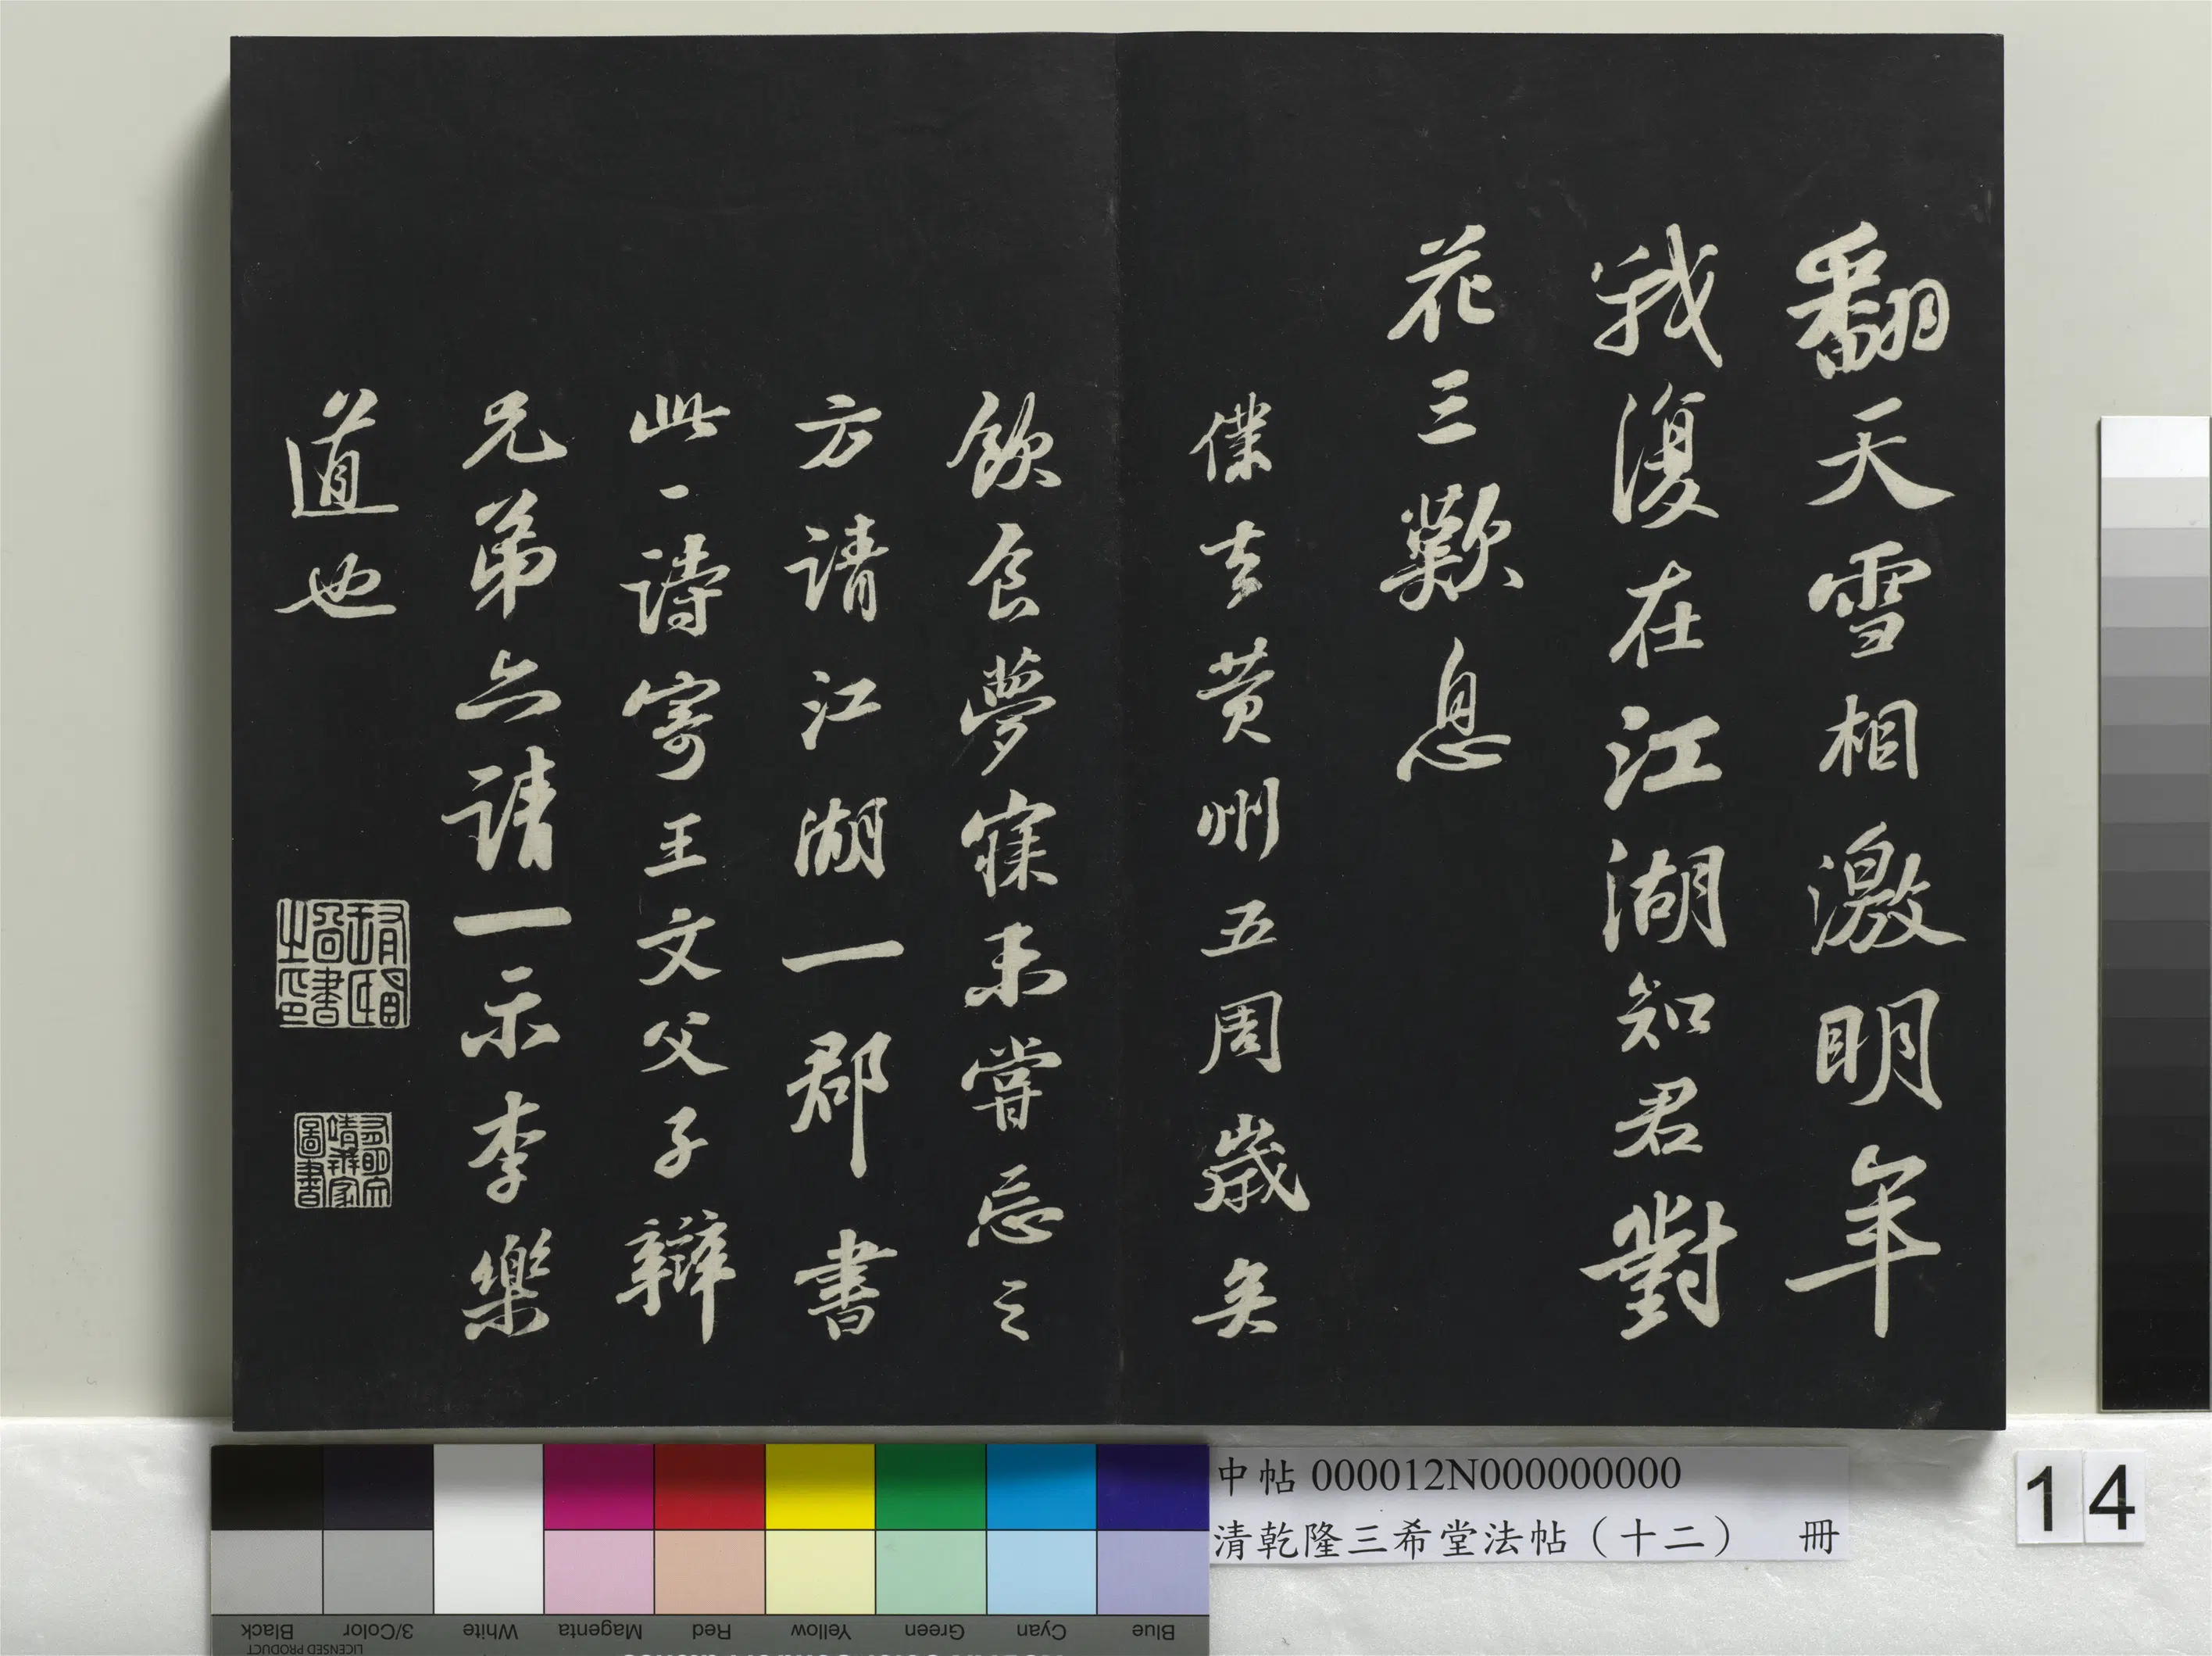 翻天雪相激明年
我復在江湖知君對
花三歎息
僕去黃州五周歲矣
飲食夢寐未嘗忘之
方請江湖一郡書
此一詩寄王文父子辯
兄弟亦請一示李樂
道也
中帖 000012N000000000
清乾隆三希堂法帖（十二） 冊
14
Black
3/Color
White
Magenta
Red
Yellow
Green
Cyan
Blue
LICENSED PRODUCT